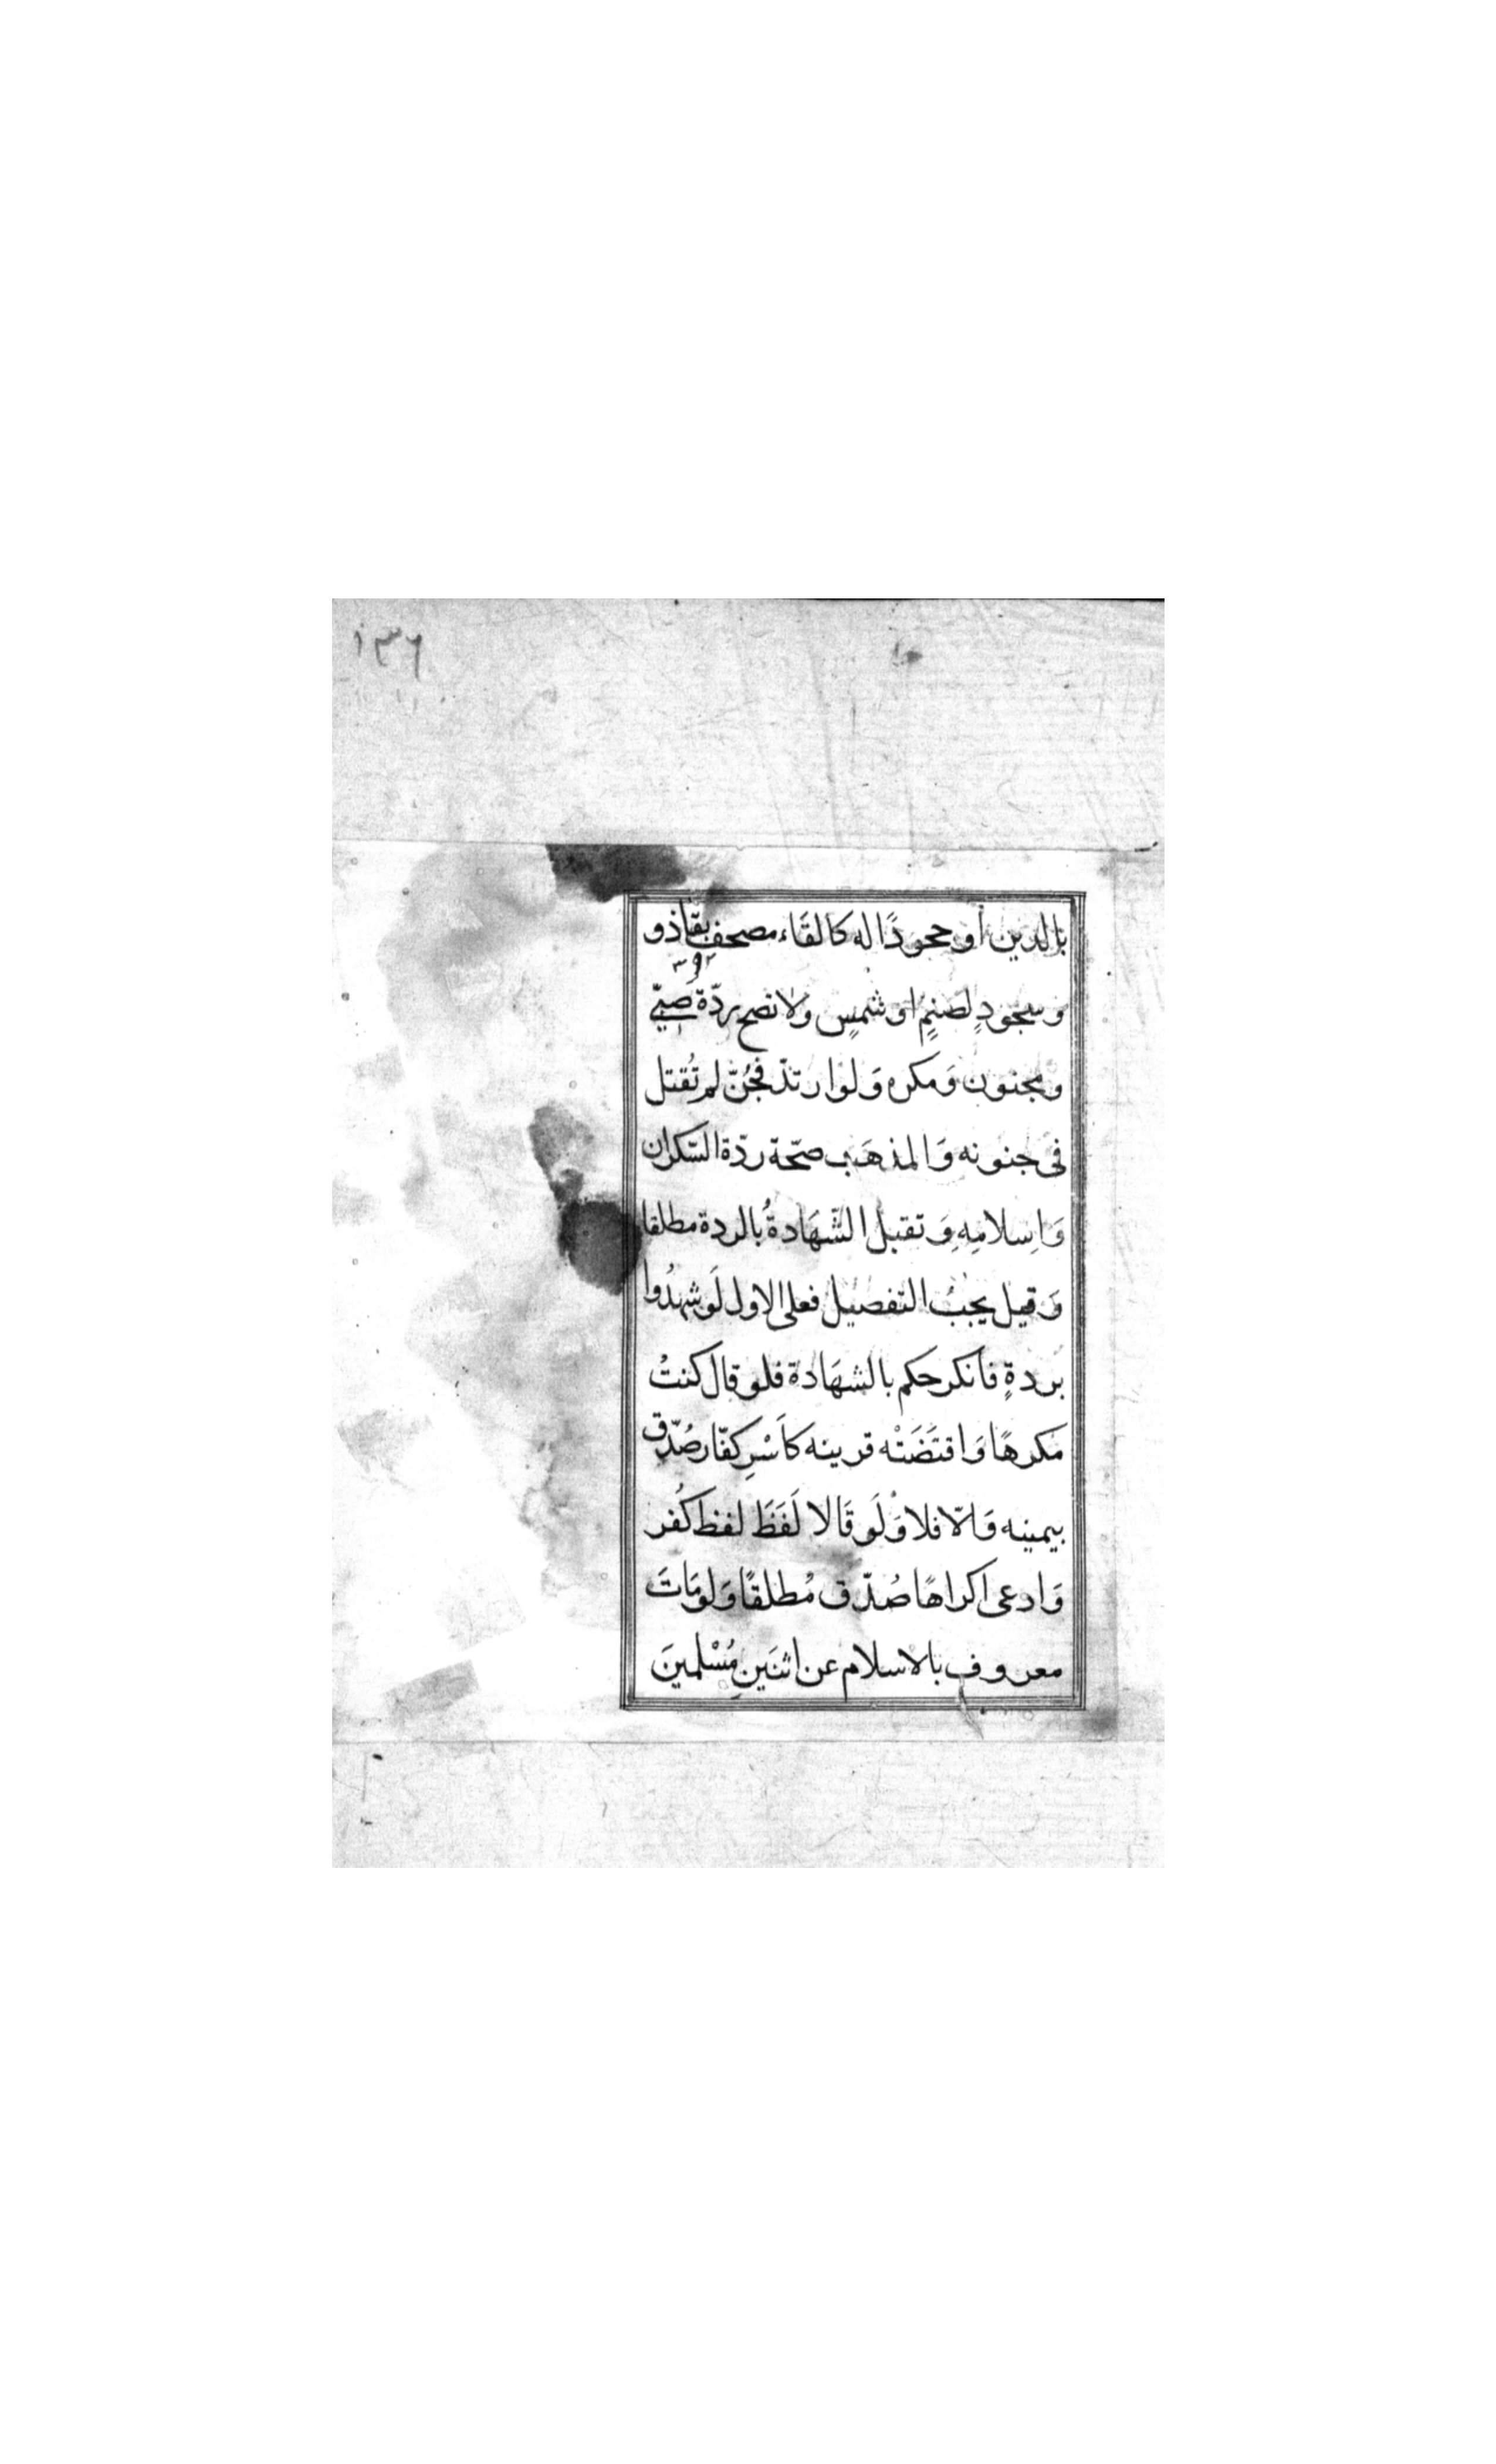 ١٣٦
بالدين أو جحودًا له كالقَاء مصحف بقاذو
وسجودٍ لصنمٍ او شمسٍ ولا تصح ردّة صبيّ
ومجنون وَمكره وَلو ارتدّ فجُنّ لم تُقتل
في جنونه وَالمذهَب صحّة ردّة السّكران
وَاِسلامِهِ وَتقبل الشّهَادةُ بالردة مطلقا
وَقيل يجبُ التفصيل فعلى الاول لَو شهدُوا
بردةٍ فانكر حكم بالشهَادة فلو قال كنتُ
مكرهًا وَاقتَضَتْه قرينه كاَسْرِ كفّار صُدّق
بيمينه وَالّا فلا وَلَو قَالا لَفَظَ لفظ كُفر
وَادعى اكراهًا صُدّق مُطلقًا وَلو مَاتَ
معروف بالاسلام عن اثنَينِ مُسْلمينَ